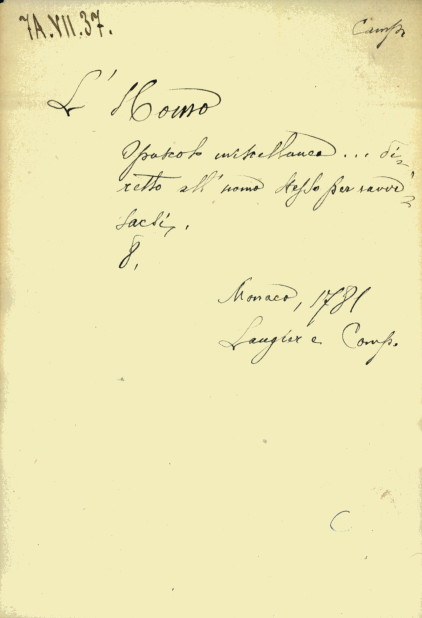 7A.VII.37.
Camp
L'Homo
Opuscolo miscellaneo... di-
retto all'uomo stesso per ravvi-
sarsi.
8,
Monaco, 1781
Laugier e Comp.
C